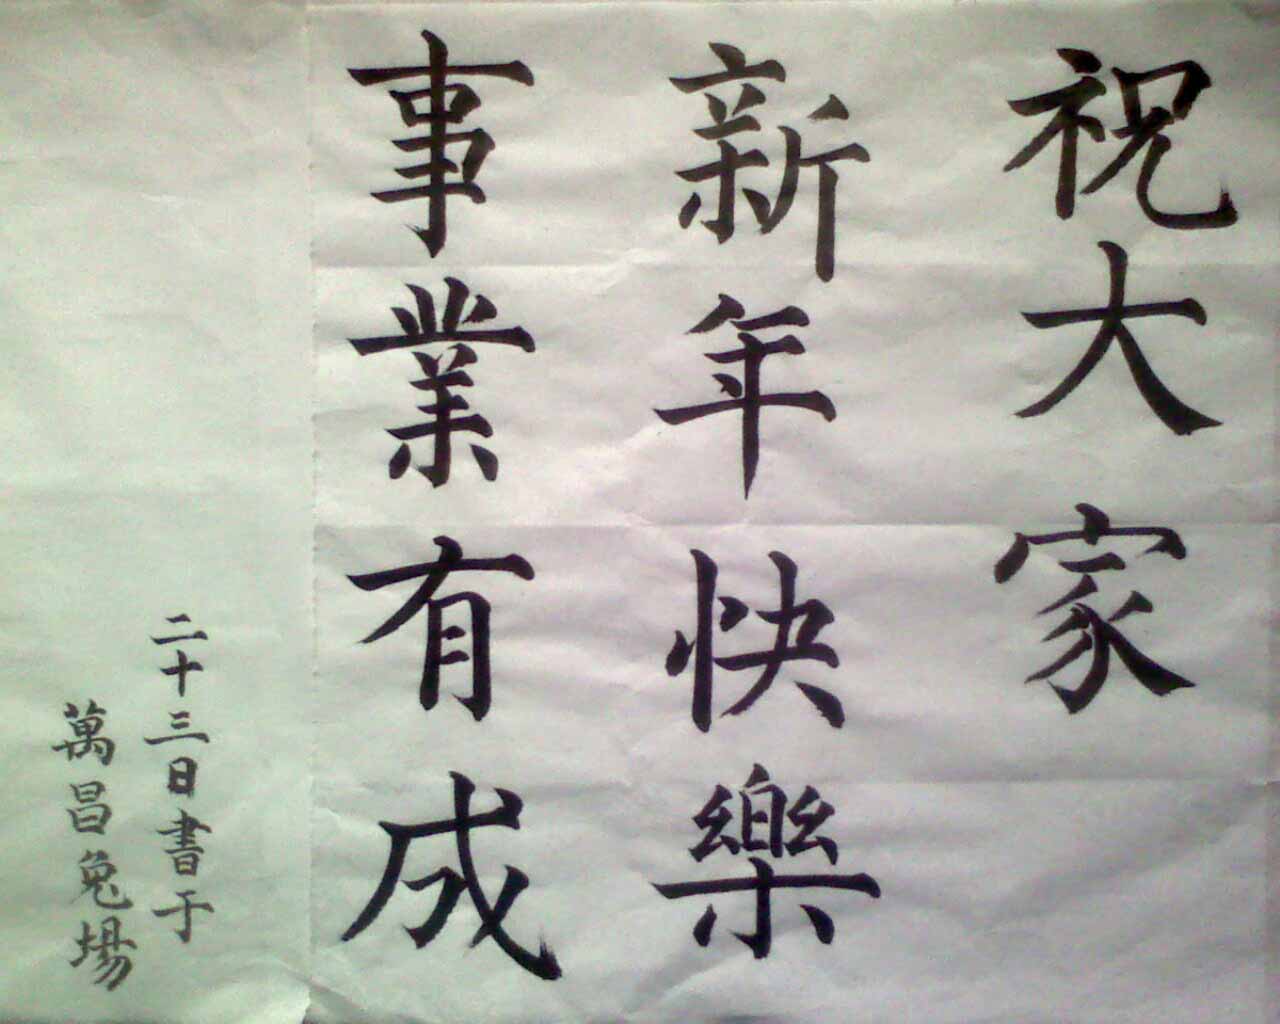 祝大家
新年快樂
事業有成
二十三日書于
萬昌兔場